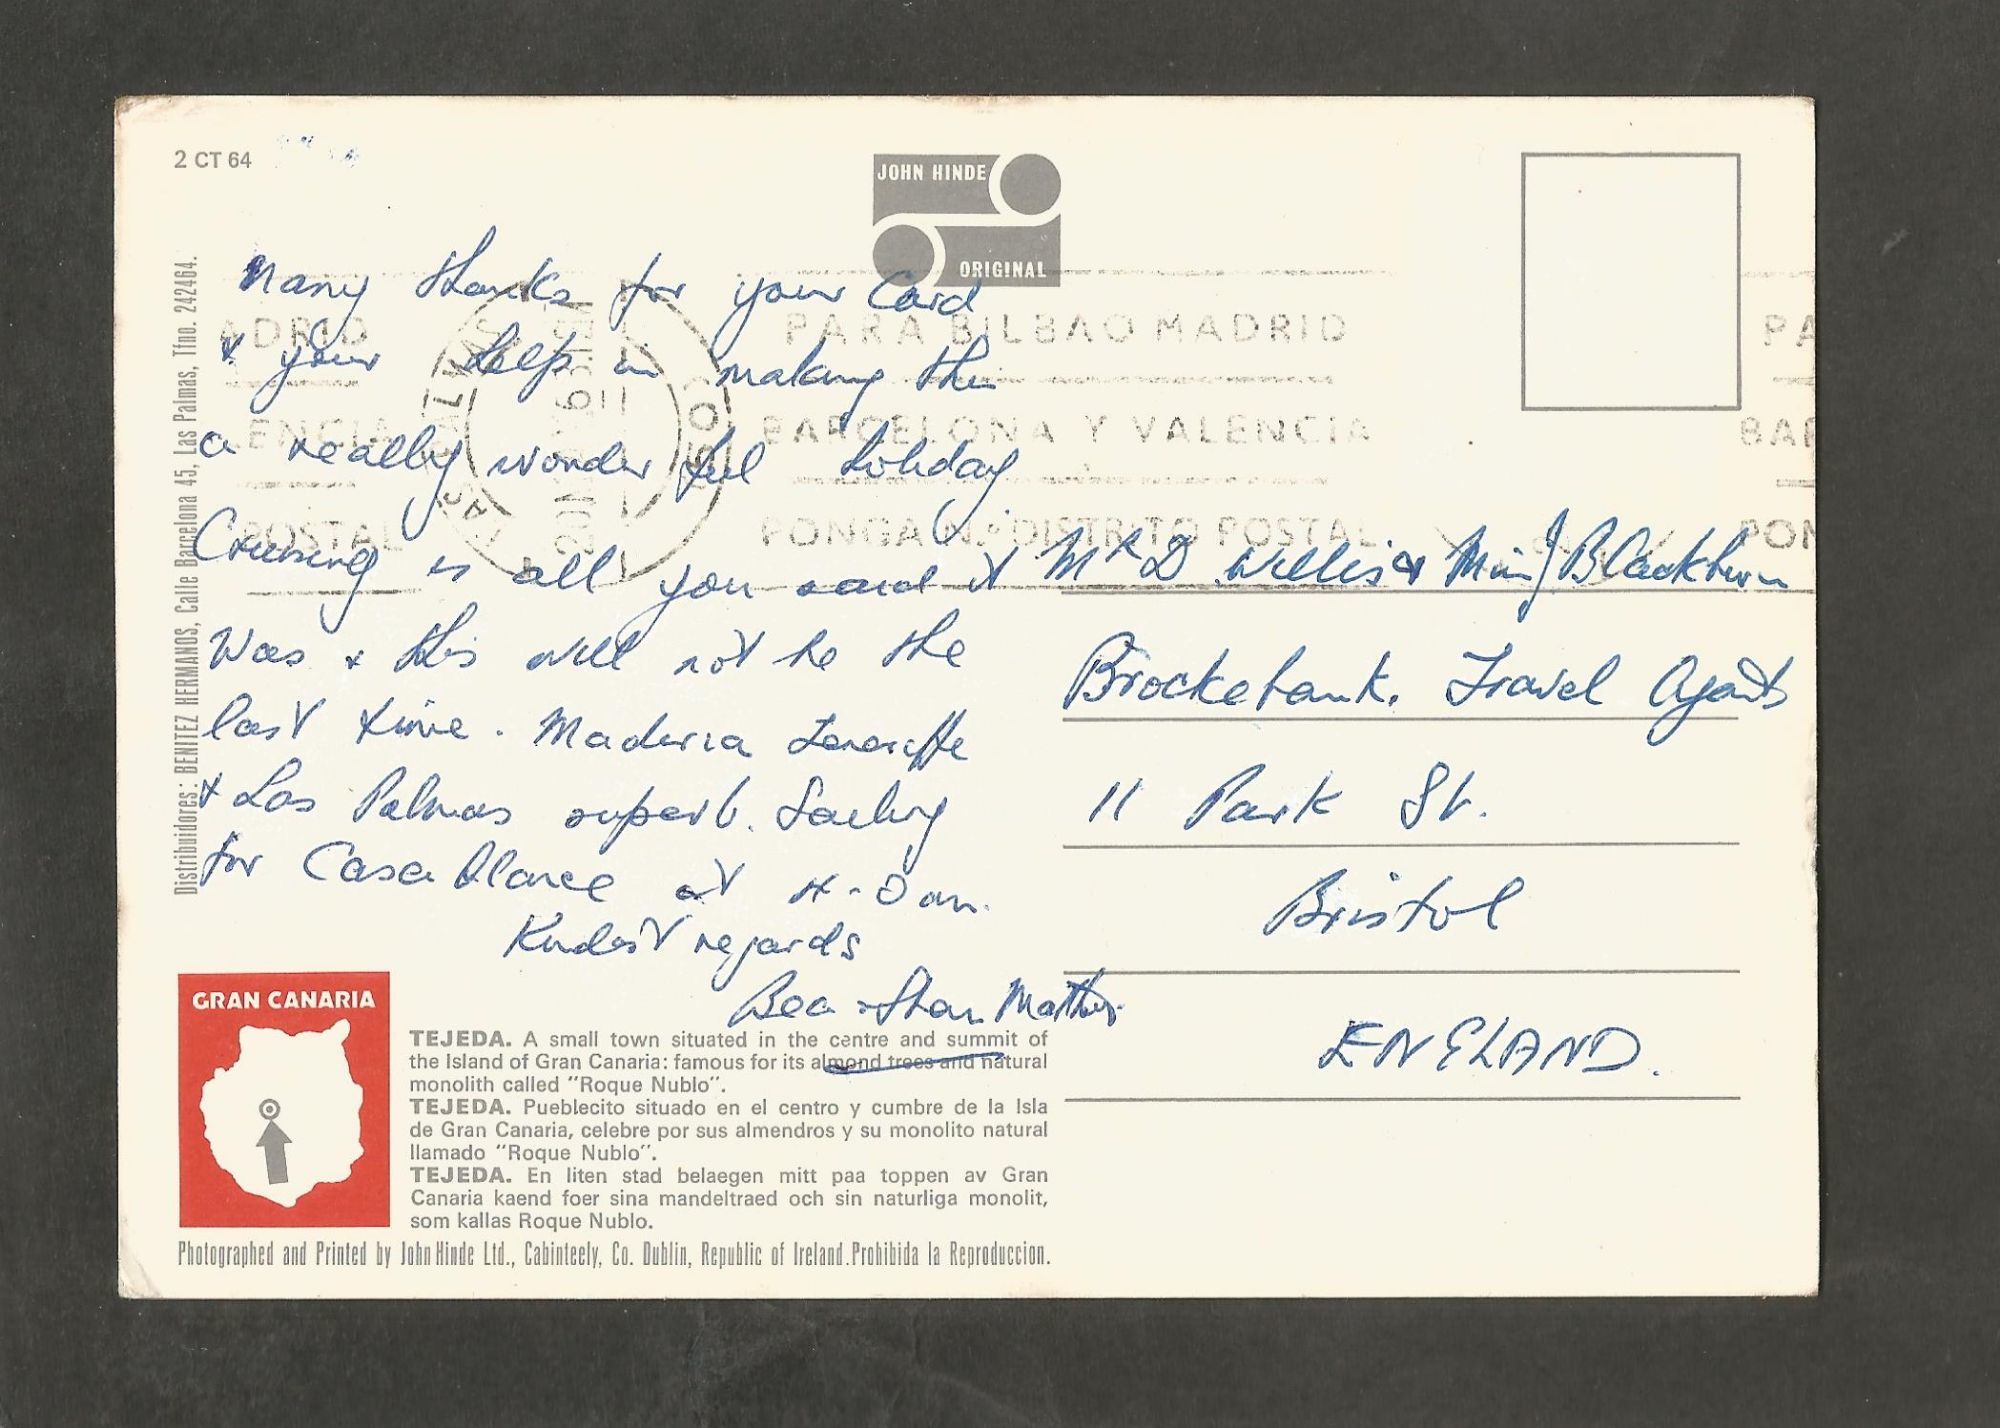 2 CT 64
JOHN HINDE
ORIGINAL
Distribuidores: BENITEZ HERMANOS, Calle Barcelona 45, Las Palmas, Tfno. 242464.
Many thanks for your Card
& your help in making this
a really wonderful holiday
Cruising is all you said it
was & this will not be the
last time. Maderia Teneriffe
& Las Palmas superb. Sailing
for Casablance at 4-0 am.
Kindest regards
Bea & Stan
ADRID
ENCIA
POSTAL
PARA BILBAO MADRID
BARCELONA Y VALENCIA
PONGA N.º DISTRITO POSTAL
PA
BAR
PON
Mr D Willis & Miss J Blackburn
Brockebank. Travel Agents
11 Park St.
Bristol
ENGLAND.
GRAN CANARIA
TEJEDA. A small town situated in the centre and summit of
the Island of Gran Canaria: famous for its almond trees and natural
monolith called "Roque Nublo".
TEJEDA. Pueblecito situado en el centro y cumbre de la Isla
de Gran Canaria, celebre por sus almendros y su monolito natural
llamado "Roque Nublo".
TEJEDA. En liten stad belaegen mitt paa toppen av Gran
Canaria kaend foer sina mandeltraed och sin naturliga monolit,
som kallas Roque Nublo.
Photographed and Printed by John Hinde Ltd., Cabinteely, Co. Dublin, Republic of Ireland. Prohibida la Reproduccion.